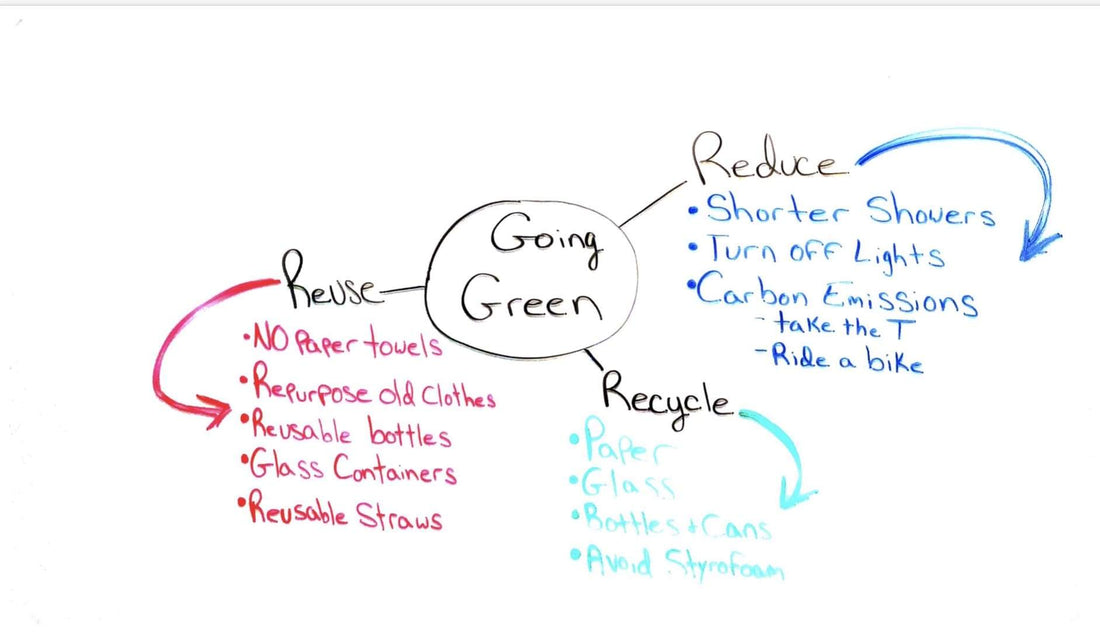 Going
Green
Reduce
• Shorter Showers
• Turn off Lights
• Carbon Emissions
- take the T
- Ride a bike
Reuse
• NO Paper towels
• Repurpose old Clothes
• Reusable bottles
• Glass Containers
• Reusable Straws
Recycle
• Paper
• Glass
• Bottles + Cans
• Avoid Styrofoam